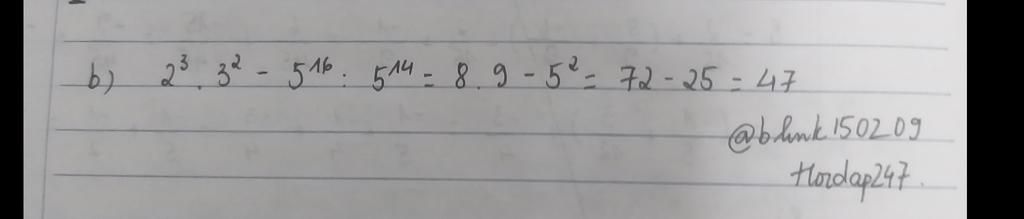 b) 2³ . 3² - 5¹⁶ : 5¹⁴ = 8 . 9 - 5² = 72 - 25 = 47
@blink150209
Hoidap247.